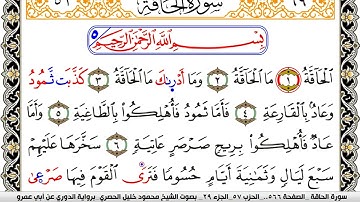 سورة الحاقة
بِسْمِ اللَّهِ الرَّحْمَٰنِ الرَّحِيمِ
الْحَاقَّةُ ١ مَا الْحَاقَّةُ ٢ وَمَا أَدْرِىٰكَ مَا الْحَاقَّةُ ٣ كَذَّبَت ثَّمُودُ
وَعَادُۢ بِالْقَارِعَةِ ٤ فَأَمَّا ثَمُودُ فَأُهْلِكُوا بِالطَّاغِيَةِ ٥ وَأَمَّا
عَادٌ فَأُهْلِكُوا بِرِيحٍ صَرْصَرٍ عَاتِيَةٍ ٦ سَخَّرَهَا عَلَيْهِمْ
سَبْعَ لَيَالٍ وَثَمَٰنِيَةَ أَيَّامٍ حُسُومًا فَتَرَى الْقَوْمَ فِيهَا صَرْعَىٰ
سورة الحاقة _الصفحة ٥٦٦_ الحزب ٥٧_الجزء ٢٩_ بصوت الشيخ محمود خليل الحصري برواية الدوري عن أبي عمرو